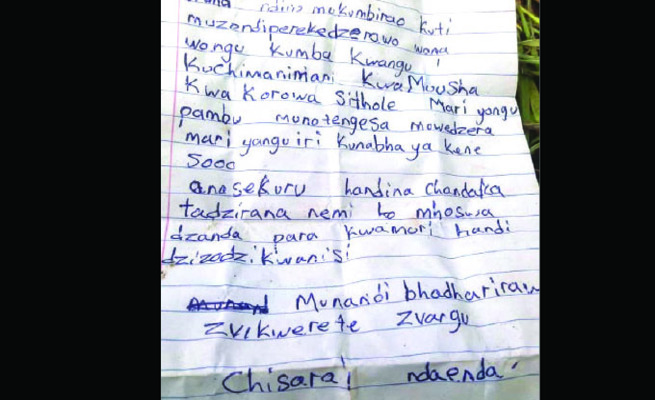 ndini makumbirao kuti
muzondiperekedzerawo wana
wangu kumba kwangu
Kuchimanimani KwaMousha
Kwa Korowa Sithole Mari yangu
pambu munotengesa mowedzera
mari yangu iri Kunabhaya kene
5000
anasekuru handina chandafca
tadzirana nemi ko mhoswa
dzanda para kwamuri handi
dzizodzikwanisi
Munandi bhadharirawo
Zvikwerete Zvangu
Chisarai ndaenda